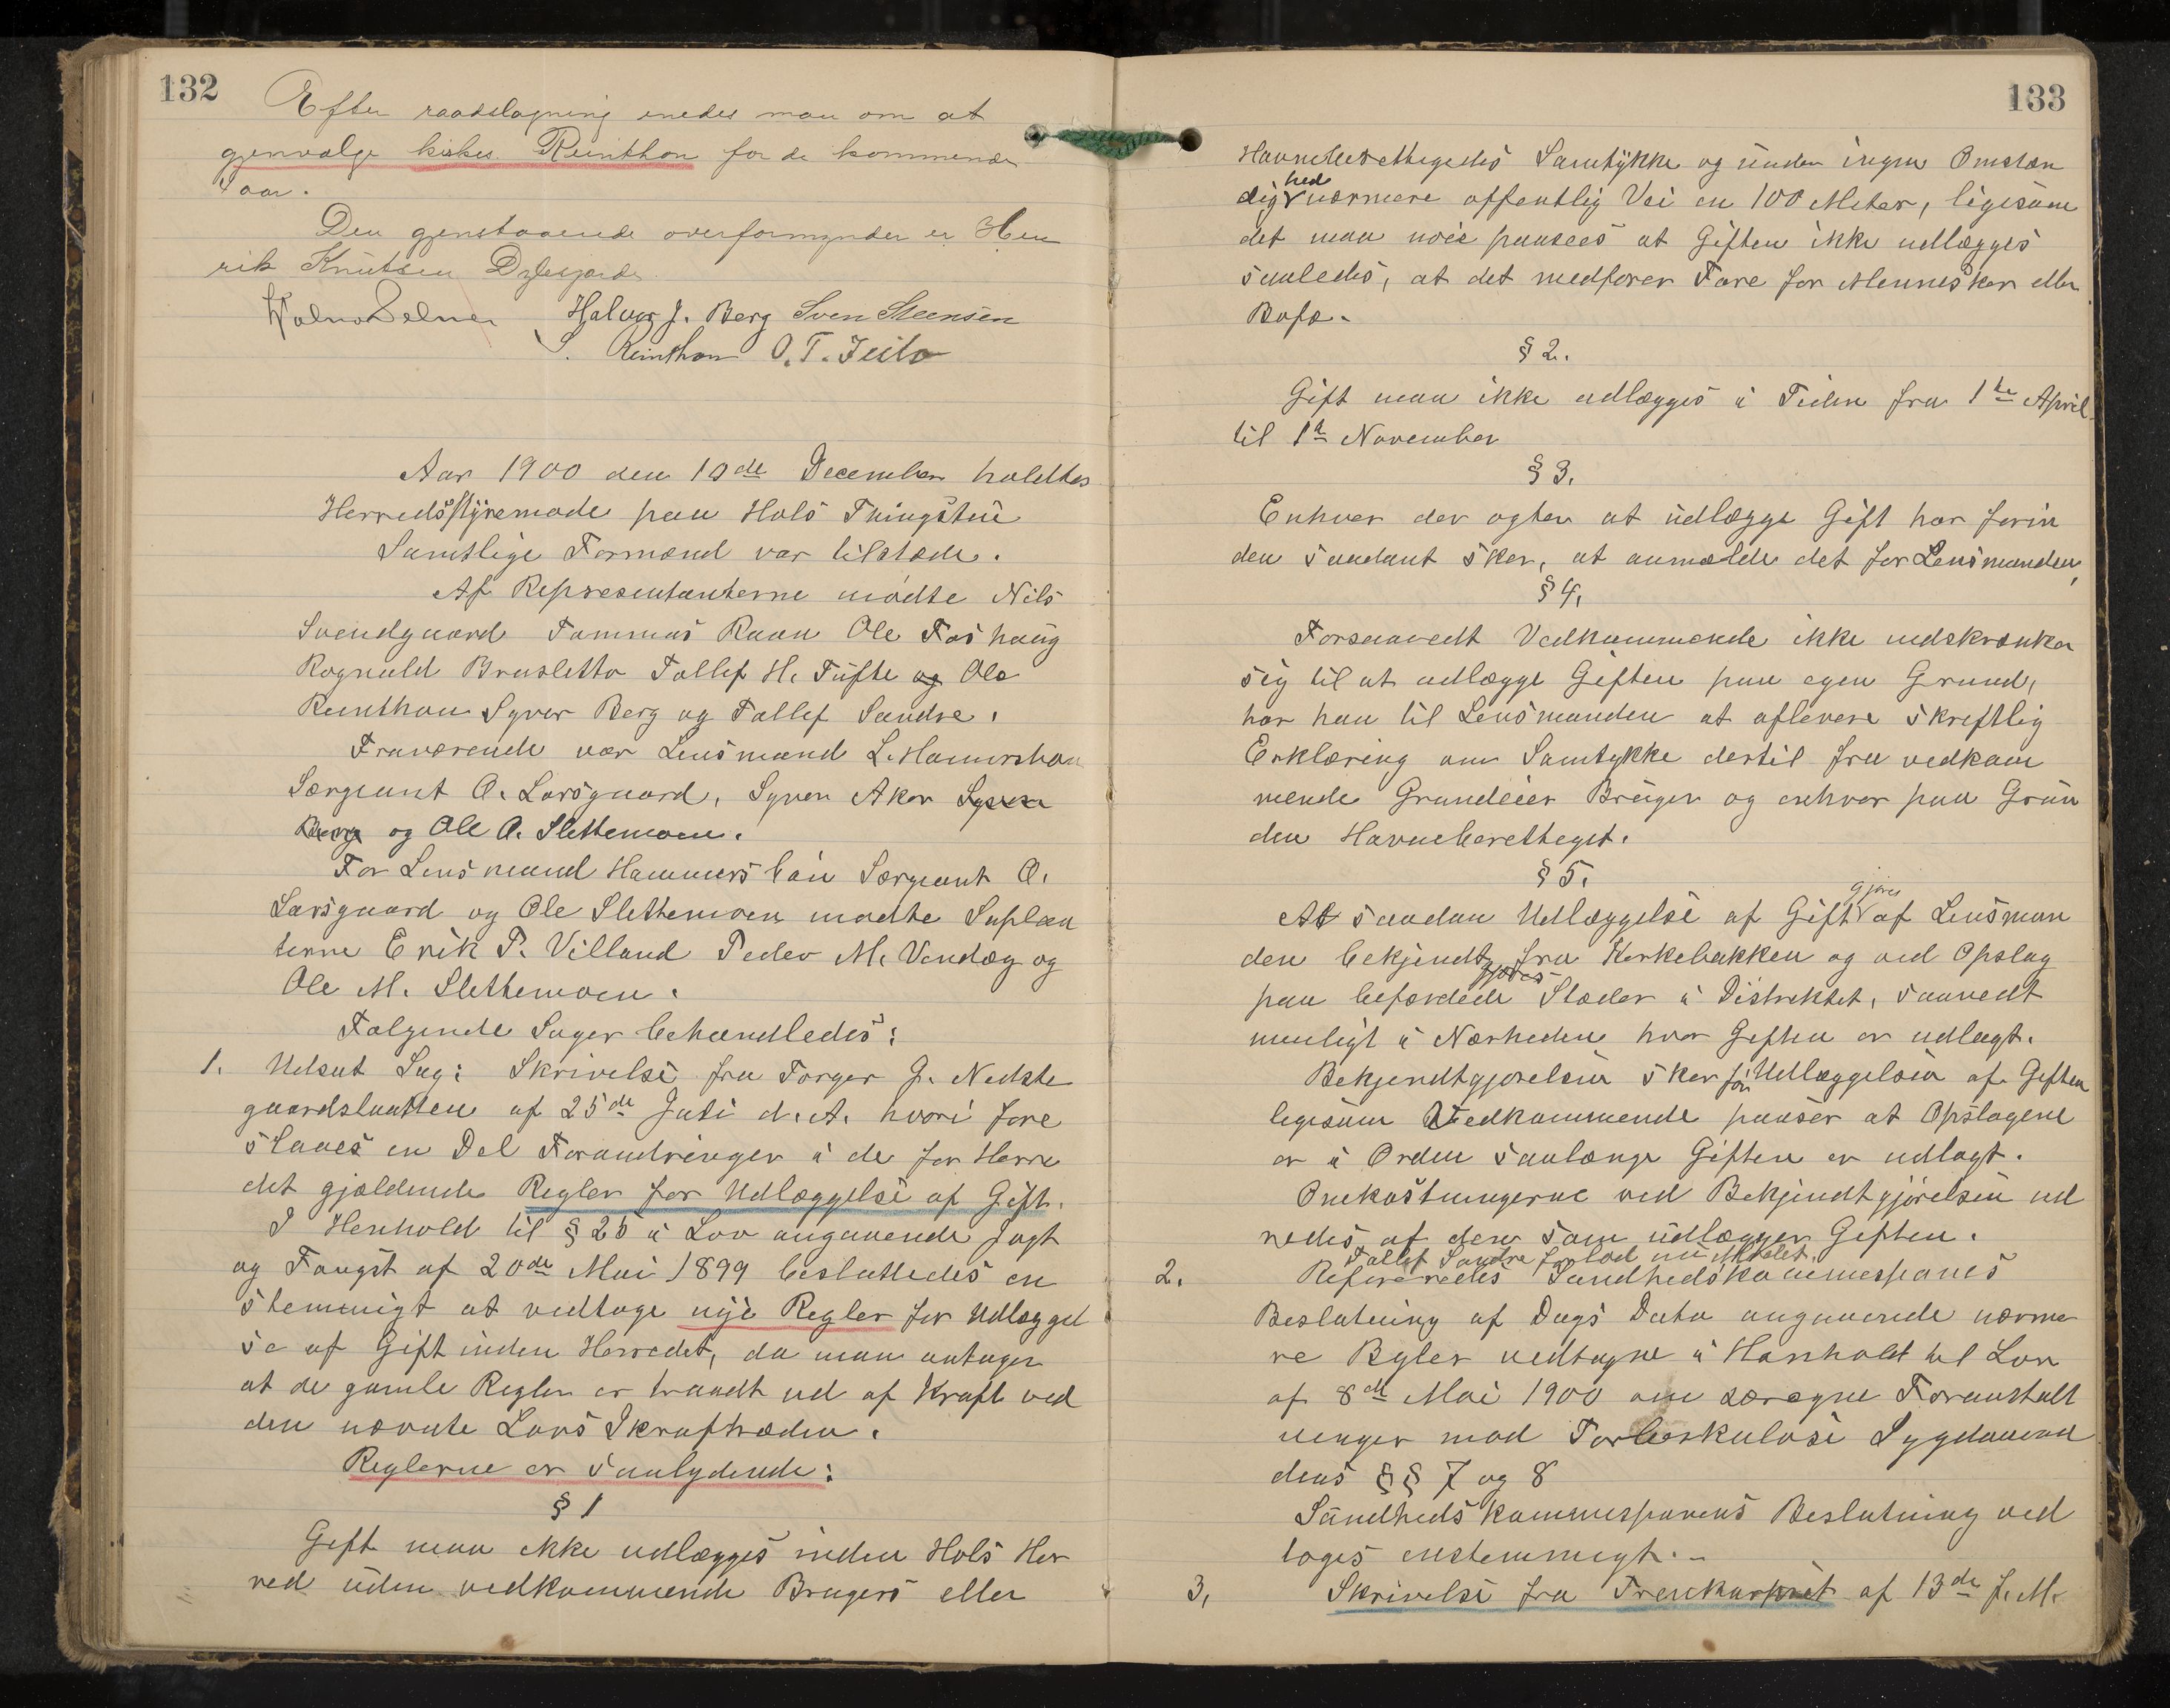 132
Efter raadslagning enedes man om at
gjenvælge kirkes. Reinthon for de kommende
4 aar.
Den gjenstaaende overformynder er Hen
rik Knutsen
Halvor J. Berg Sven Steensen
S. Reinthon O. T. Jeilo
Aar 1900 den 10de December holdtes
Herredsstyremøde paa Hols Thingstue
Samtlige Formænd var tilstede.
Af Representanterne mødte Nils
Svendgaard Tommas Raan Ole Foshaug
Rognald Brusletto Tollef H. Tufte og Ole
Reinthon Syver Berg og Tollef Sandre.
Fraværende var Lensmand L. Hamersbon
Sergeant O. Larsgaard, Syver Aker Syver
Berg og Ole O. Slettemoen.
For Lensmand Hammersbøn Sergeant O.
Larsgaard og Ole Slettemoen mødte Suplean
terne Erik T. Villand Peder M. Vendøg og
Ole M. Slettemoen.
Følgende Sager behandledes:
1. Udsat Sag: Skrivelse fra Torger G. Nedste
gaardslaatten af 25de Juli d. A. hvori fore
slaaes en Del Forandringer i de for Herre
det gjældende Regler for Udlæggelse af Gift.
I Henhold til § 25 i Lov angaaende Jagt
og Fangst af 20de Mai 1899 besluttedes en
stemmigt at vedtage nye Regler for Udlæggel
se af Gift inden Herredet, da man antager
at de gamle Regler er traadt ud af Kraft ved
den nævnte Lovs Ikrafttræden.
Reglerne er saalydende:
§ 1
Gift maa ikke udlægges inden Hols Her
red uden vedkommende Brugers eller
133
Havneberettigedes Samtykke og under ingen Omstæn
dighed nærmere offentlig Vei en 100 Meter, ligesom
det maa nøie paasees at Giften ikke udlægges
saaledes, at det medfører Fare for Mennesker eller
Bufæ.
§ 2.
Gift maa ikke udlægges i Tiden fra 1ste April
til 1ste November
§ 3.
Enhver der agter at udlægge Gift har forin
den saadant sker, at anmælde det for Lensmanden,
§ 4.
Forsaavedt Vedkommende ikke indskrænker
sig til at udlægge Giften paa egen Grund,
har han til Lensmanden at aflevere skriftlig
Erklæring om Samtykke dertil fra vedkom
mende Grundeier Bruger og enhver paa Grun
den Havneberettiget.
§ 5.
At saadan Udlæggelse af Gift gjøres af Lensman
den bekjendt fra Kirkebakken og ved Opslag
gjøres
paa befærdede Stæder i Distriktet, saavidt
muligt i Nærheden hvor Giften er udlagt.
Bekjendtgjørelsen sker før Udlæggelsen af Giften
ligesom Vedkommende paaser at Opslagene
er i Orden saalænge Giften er udlagt.
Omkostningerne ved Bekjendtgjørelsen ud
redes af den som udlægger Giften.
Tollef Sandre forlod nu Mødet.
2. Refereredes Sundhedskommesjonens
Beslutning af Dags Dato angaaende nærme
re Regler vedtagne i Henhold til Lov
af 8de Mai 1900 om særegne Foranstalt
ninger mod Torberkuløse Sygdomme
dens §§ 7 og 8
Sundhedskommesjonens Beslutning ved
toges enstemmigt. -
3. Skrivelse fra af 13de f. M.